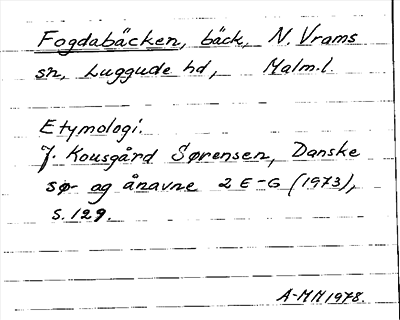 Fogdabäcken, bäck, N. Vrams
sn, Luggude hd, Malm.l.
Etymologi.
J. Kousgård Sørensen, Danske
sø- og ånavne 2 E-G (1973),
s. 129.
A-MH 1978.